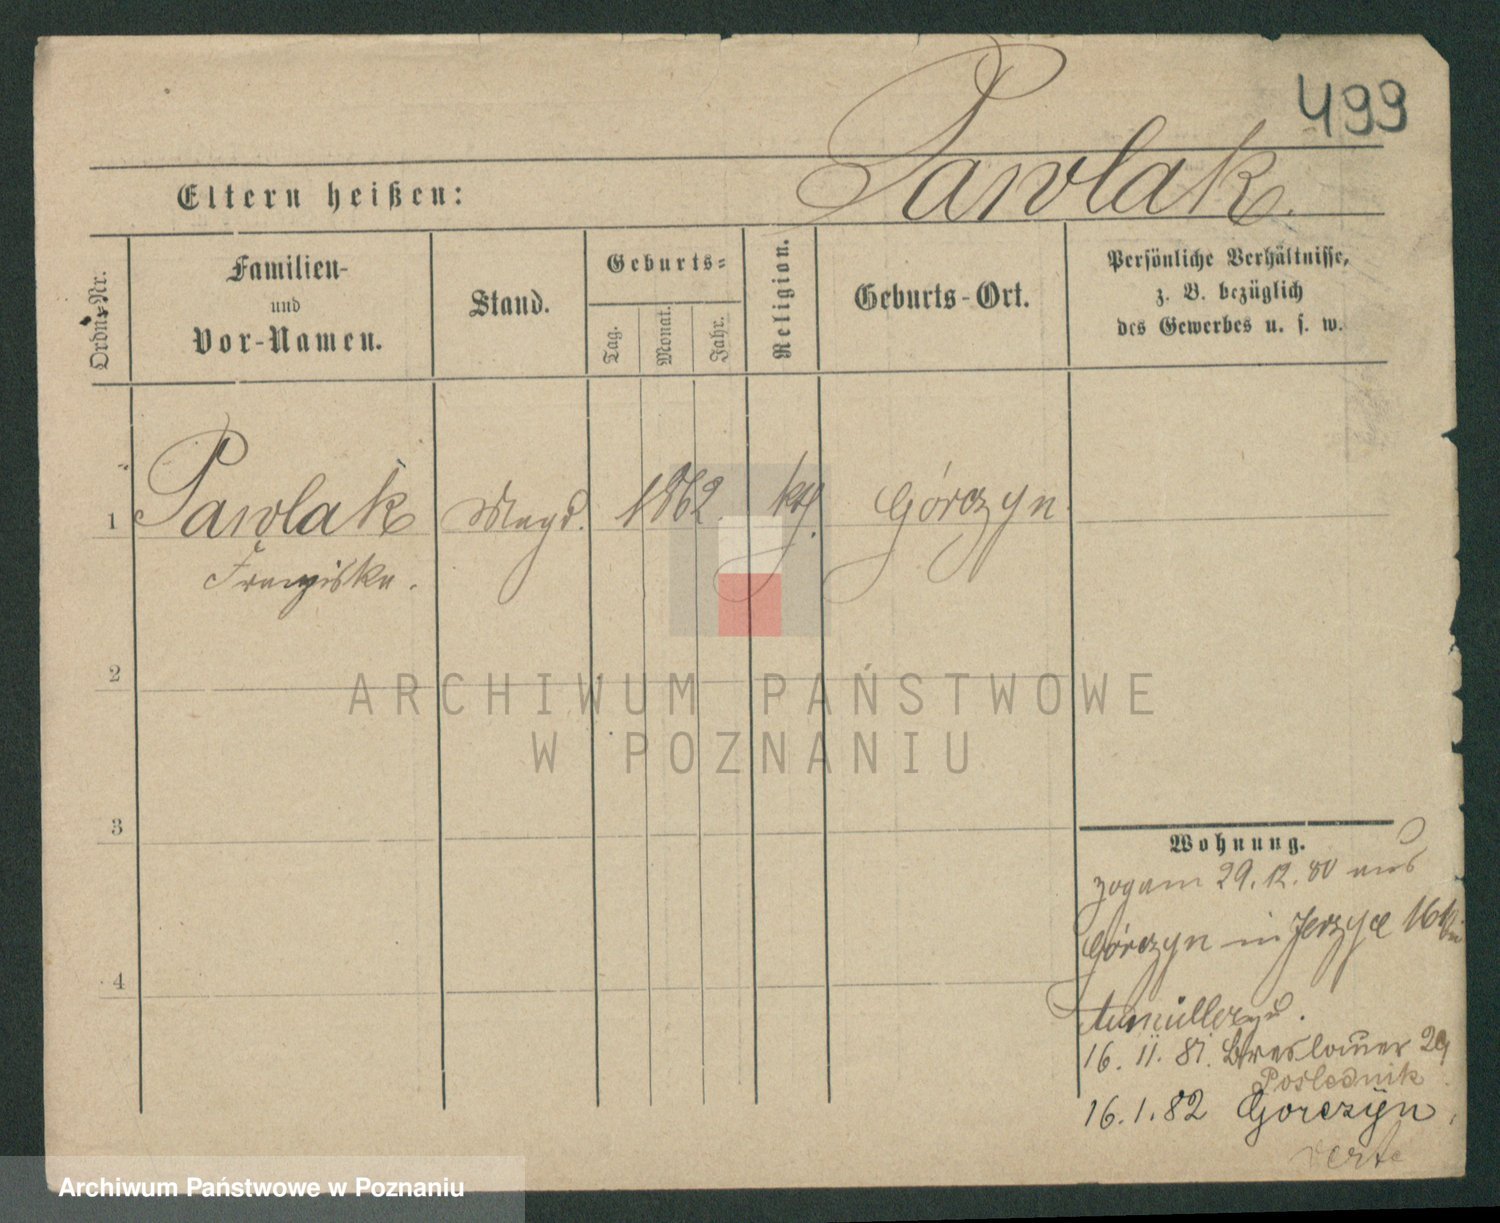 499
Pawlak.
Eltern heißen:
Ordn.-Nr.
Familien-
und
Vor-Namen.
Stand.
Geburts-
Tag.
Monat.
Jahr.
Religion.
Geburts-Ort.
Persönliche Verhältnisse,
z. B. bezüglich
des Gewerbes u. s. w.
1 Pawlak Magd. 1862 kth. Górczyn.
Franziska.
2
3
4
ARCHIWUM PAŃSTWOWE
W POZNANIU
Wohnung.
zog am 29.12.80 aus
Górczyn in Jerzyce 16
16. 11. 81. Breslauer 29
Poslednik
16.1.82 Gorczyn.
verte
Archiwum Państwowe w Poznaniu